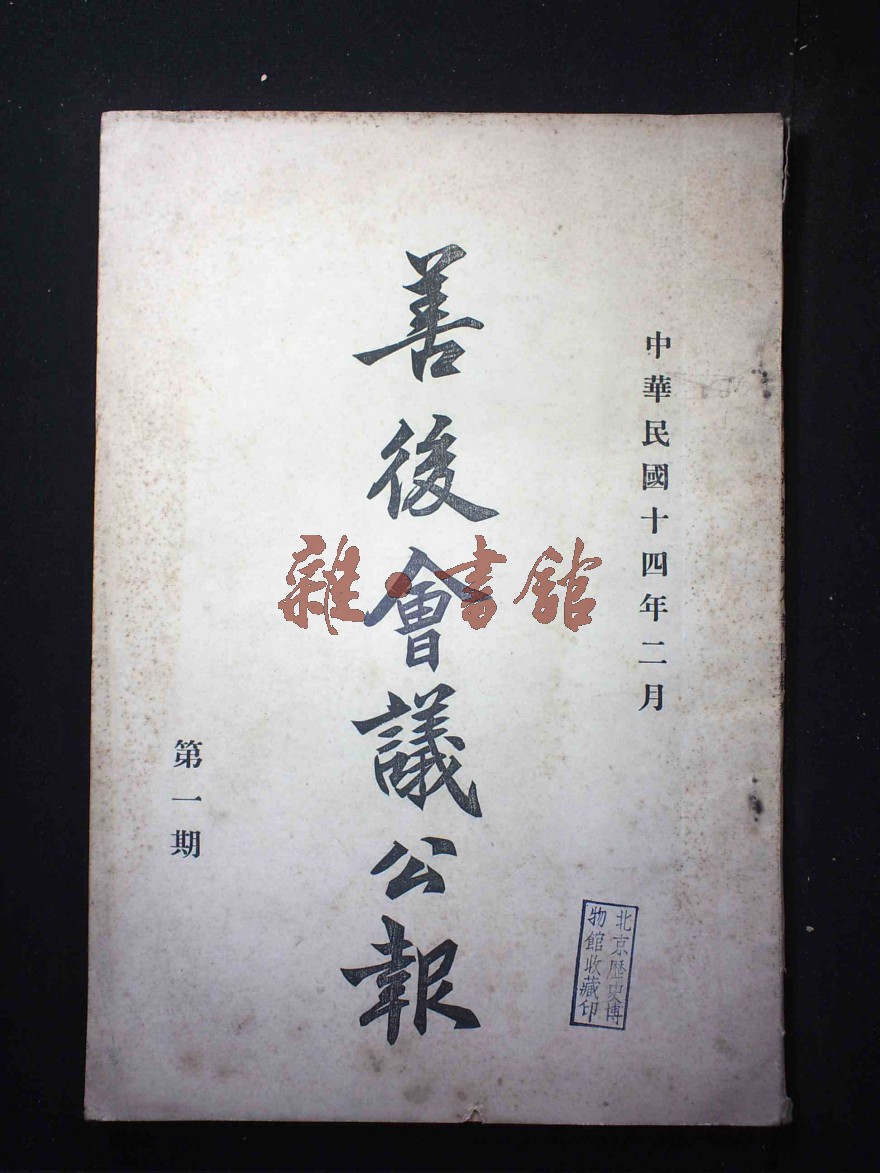 中華民國十四年二月
善後會議公報
第一期
雜·書館
北京歷史博
物館收藏印